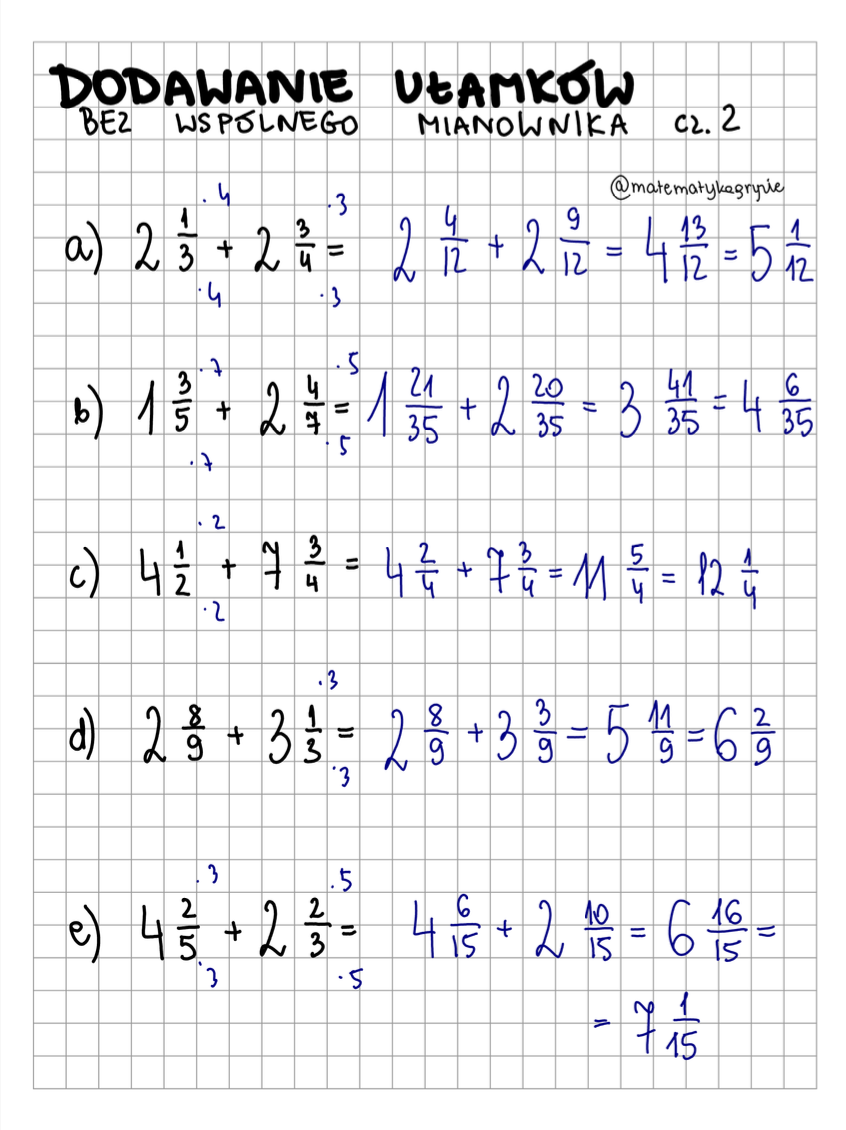 DODAWANIE UŁAMKÓW
BEZ WSPÓLNEGO MIANOWNIKA CZ. 2
@matematykagryzie
a) 2 1/3 ·4 ·4 + 2 3/4 ·3 ·3 = 2 4/12 + 2 9/12 = 4 13/12 = 5 1/12
b) 1 3/5 ·7 ·7 + 2 4/7 ·5 ·5 = 1 21/35 + 2 20/35 = 3 41/35 = 4 6/35
c) 4 1/2 ·2 ·2 + 7 3/4 = 4 2/4 + 7 3/4 = 11 5/4 = 12 1/4
d) 2 8/9 + 3 1/3 ·3 ·3 = 2 8/9 + 3 3/9 = 5 11/9 = 6 2/9
e) 4 2/5 ·3 ·3 + 2 2/3 ·5 ·5 = 4 6/15 + 2 10/15 = 6 16/15 =
= 7 1/15